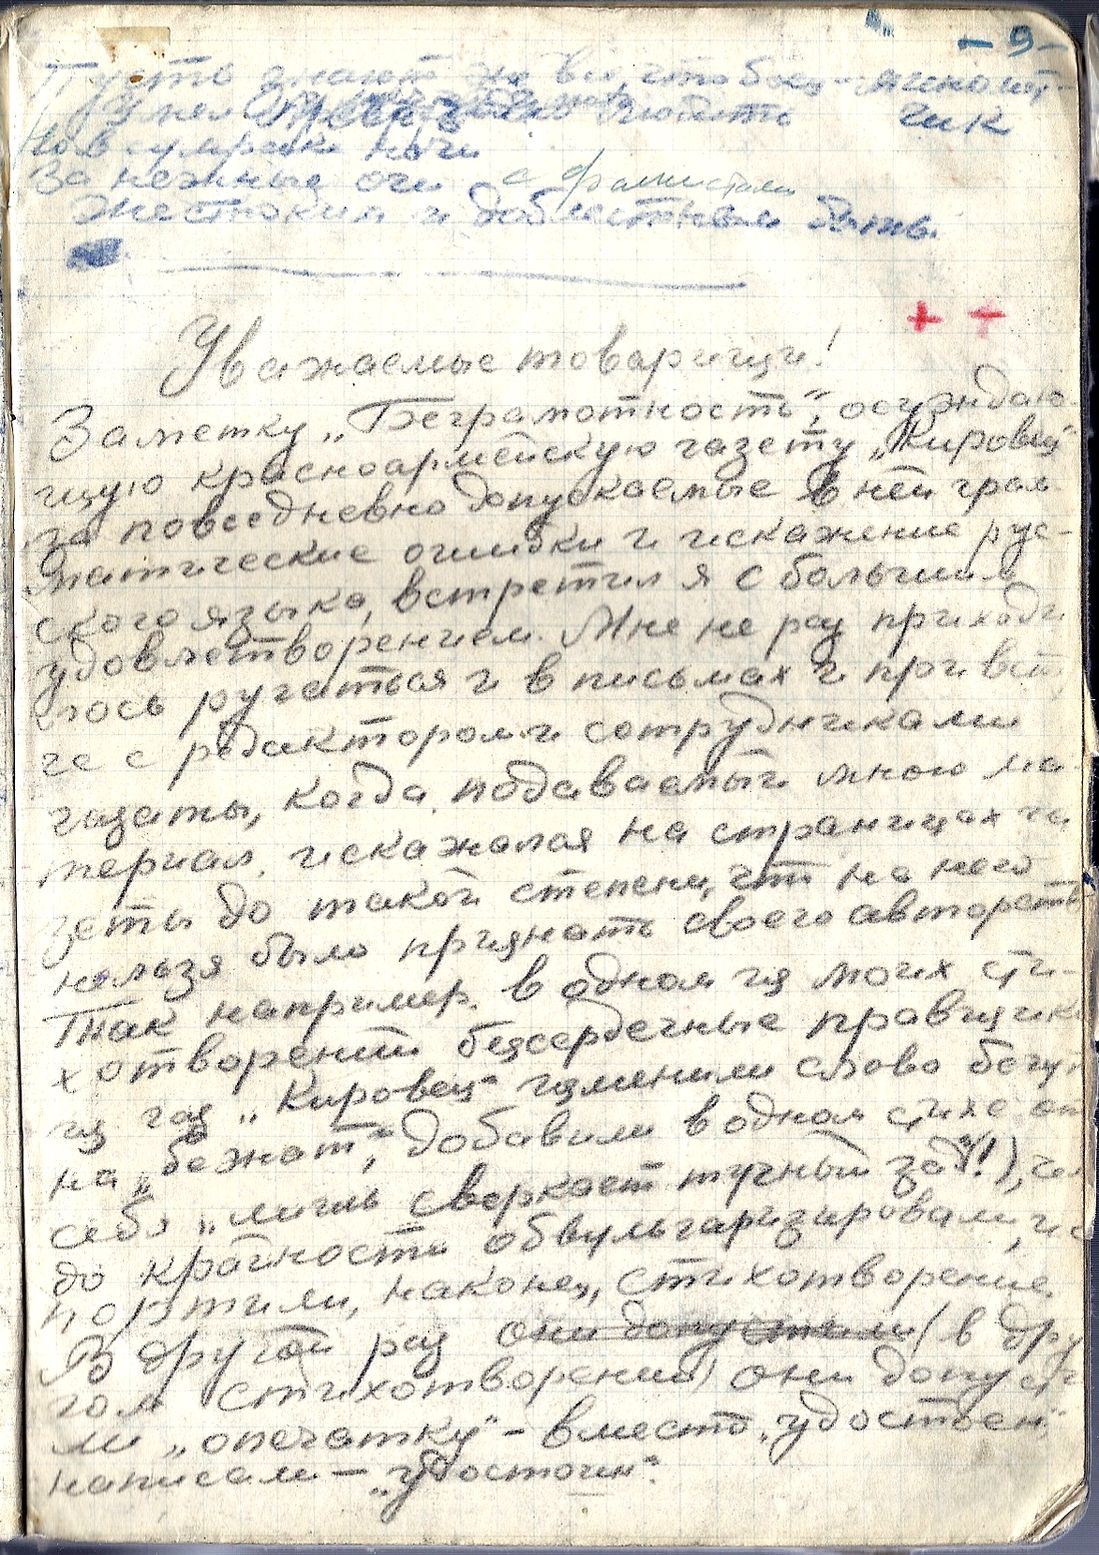 - 9 -
Пусть знают же все, что боец - 
Умел любить
Но в сумраке ночи
За нежные очи с фашистами
Жестоким и доблестным быть.
+ +
Уважаемые товарищи!
Заметку „Безграмотность", осуждаю-
щую красноармейскую газету „Кировец"
за повседневно допускаемые в ней грам-
матические ошибки и искажение рус-
ского языка, встретил я с большим
удовлетворением. Мне не раз приходи
лось ругаться и в письмах и при вст
че с редактором и сотрудниками
газеты, когда подаваемый мною ма-
териал искажался на страницах га
зеты до такой степени, что на него
нельзя было признать своего авторств
Так например. в одном из моих сти-
хотворений бессердечные правщики
из газ „Кировец" изменили слово бегут
на „бежат", добавили в одном стихе от
себя „лишь сверкает тучный зад"!),
до крайности обвульгаризировали, и с
портили, наконец, стихотворение.
В другой раз они допустили (в дру
гом стихотворении) они допусти
ли „опечатку" - вместо „удостоен"
написали - „удостоин".